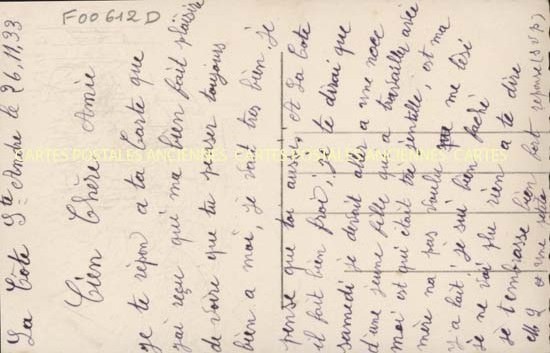 F00612D
La Côte St André le 26.11.33
Bien Chère Amie
je te répon a ta Carte que
j'ai reçu qui ma bien fait plaisir
de voire que tu penser toujours
bien a moi, je vait très bien je
pense que toi aussi, A La Cote
il fait bien froi, je te dirai que
samedi je devait aller a une noce
d'une jeune fille qui a travailler avec
moi est qui était tré jentille, est ma
mère na pas voulu me lesé
y a lait, je sui bien faché
je ne vai plu rien a te dire
je t'embrasse bien fort reponse (S V P)
CARTES POSTALES ANCIENNES CARTES POSTALES ANCIENNES CARTES POSTALES ANCIENNES